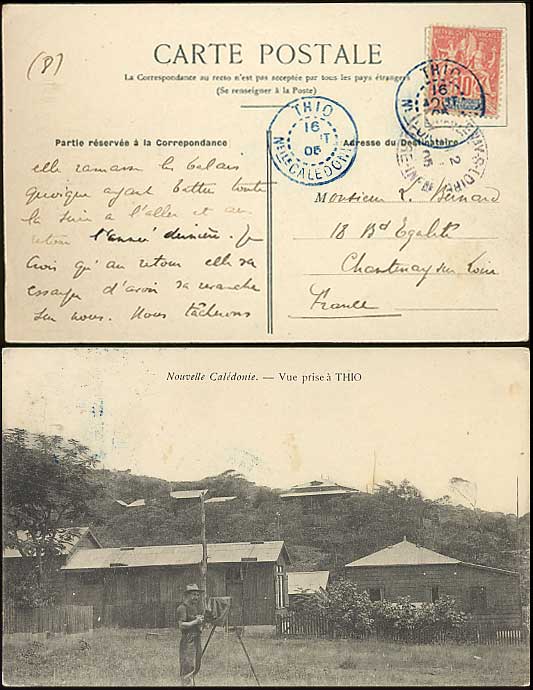 (8)
CARTE POSTALE
La Correspondance au recto n'est pas acceptée par tous les pays étrangers
(Se renseigner à la Poste)
THIO
16
05
Nlle CALEDONIE
THIO
16
RÉPUBLIQUE FRANÇAISE
10
Partie réservée à la Correpondance
Adresse du Destinataire
elle ramasse les balais
quoique ayant battu toute
la à l'aller et au
retour l'année dernière. Je
crois qu'au retour elle va
essayer d'avoir sa revanche
sur nous. Nous tâcherons
Monsieur L. Bernard
18 Bd Egalité
Chantenay sur Loire
France
Nouvelle Calédonie. — Vue prise à THIO